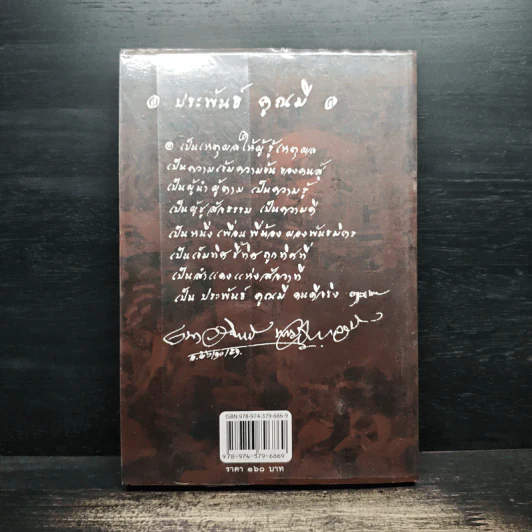 ๑ ประพันธ์ คูณมี ๑
๑ เป็นเหตุผลให้ผู้รู้เหตุผล
เป็นความเข้มความข้น ของคนสู้
เป็นผู้นำ ผู้ตาม เป็นความรู้
เป็นผู้ชูสัจธรรม เป็นความดี
เป็นหนึ่ง เพื่อนพี่น้อง ผองพันธมิตร
เป็นเข็มทิศ ชี้ทิศ ถูกทิศที่
เป็นสำแดงแห่งสัจวาที
เป็น ประพันธ์ คูณมี คนดีจริง
ISBN 978-974-379-686-9
9 789743 796869
ราคา ๑๖๐ บาท